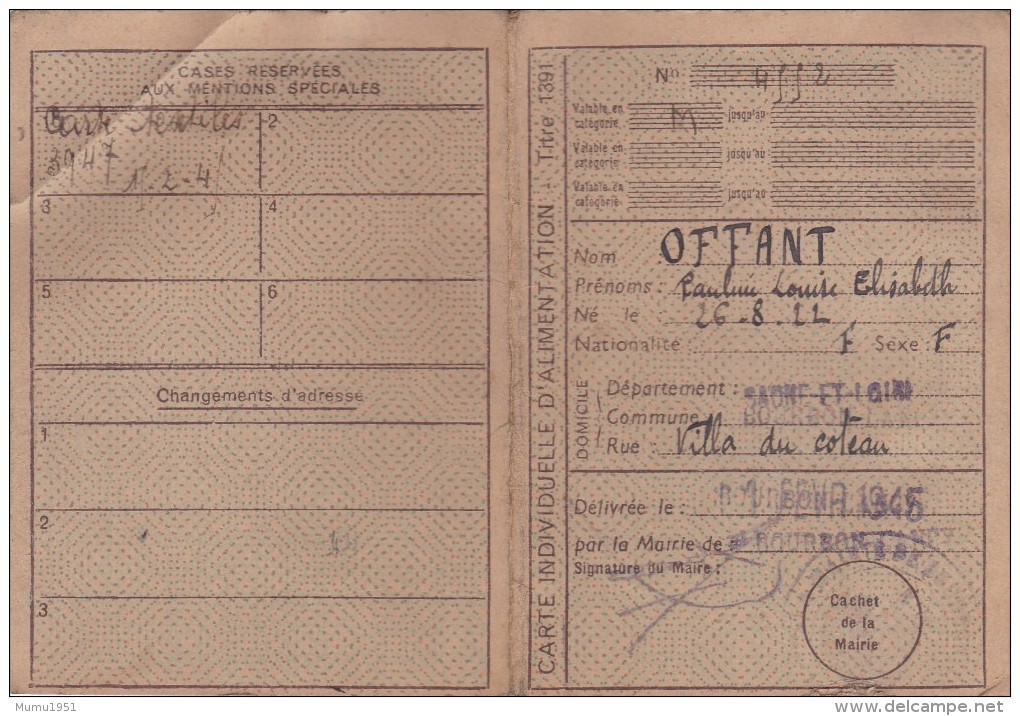 CASES RÉSERVÉES
AUX MENTIONS SPÉCIALES
1 Carte textiles
2
3947
1-2-4
3
4
5
6
Changements d'adresse
1
2
3
CARTE INDIVIDUELLE D'ALIMENTATION - Titre 1391
No
Valable en catégorie M jusqu'au
Valable en catégorie jusqu'au
Valable en catégorie jusqu'au
Nom : OFFANT
Prénoms : Pauline Louise Elisabeth
Né le : 26-8-22
Nationalité F Sexe : F
DOMICILE
Département : SAONE-ET-LOIRE
Commune :
Rue : Villa du coteau
Délivrée le : 1 FEVR 1946
par la Mairie de BOURBON-LANCY
Signature du Maire :
Cachet
de la
Mairie
Mumu1951
www.delcampe.net